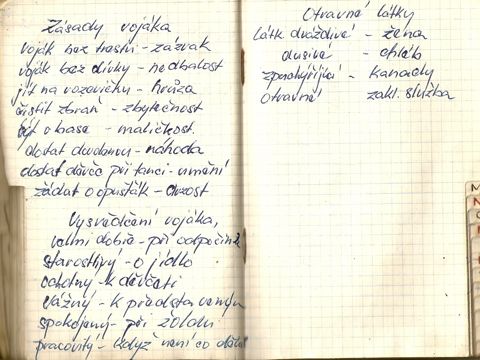 Zásady vojáka
voják bez trestu - zázrak
voják bez dívky - nedbalost
jít na vozovičky - hrůza
čistit zbraň - zbytečnost
být v base - maličkost
dostat dvodennu - náhoda
dostat děvče při tanci - umění
žádat o opusťák - drzost
Vysvědčení vojáka,
velmi dobrý - při odpočinku
starostlivý - o jídlo
ochotný - k děvčeti
vážný - k představeným
spokojený - při žoldu
pracovitý - když není co dělat
Otravné látky
látk. dráždivé - žena
dusivé - chléb
zpuchýřující - kanady
otravné zákl. služba